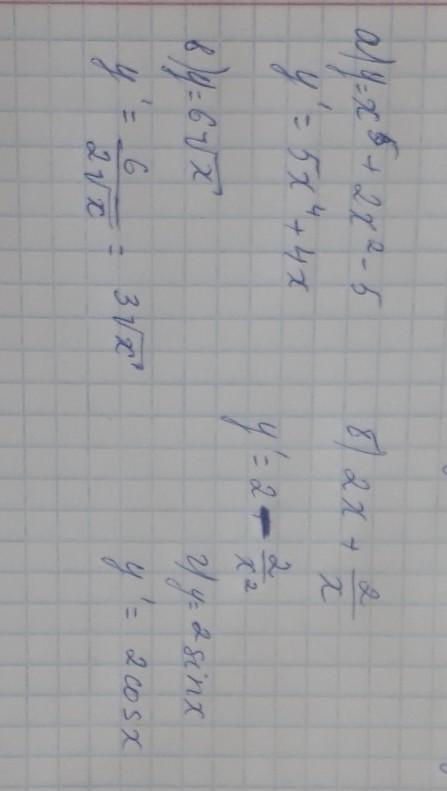 а) y = x⁵ + 2x² - 5
y' = 5x⁴ + 4x
б) 2x + 2/x
y' = 2 - 2/x²
в) y = 6√x
y' = 6/(2√x) = 3√x
г) y = 2sinx
y' = 2cosx